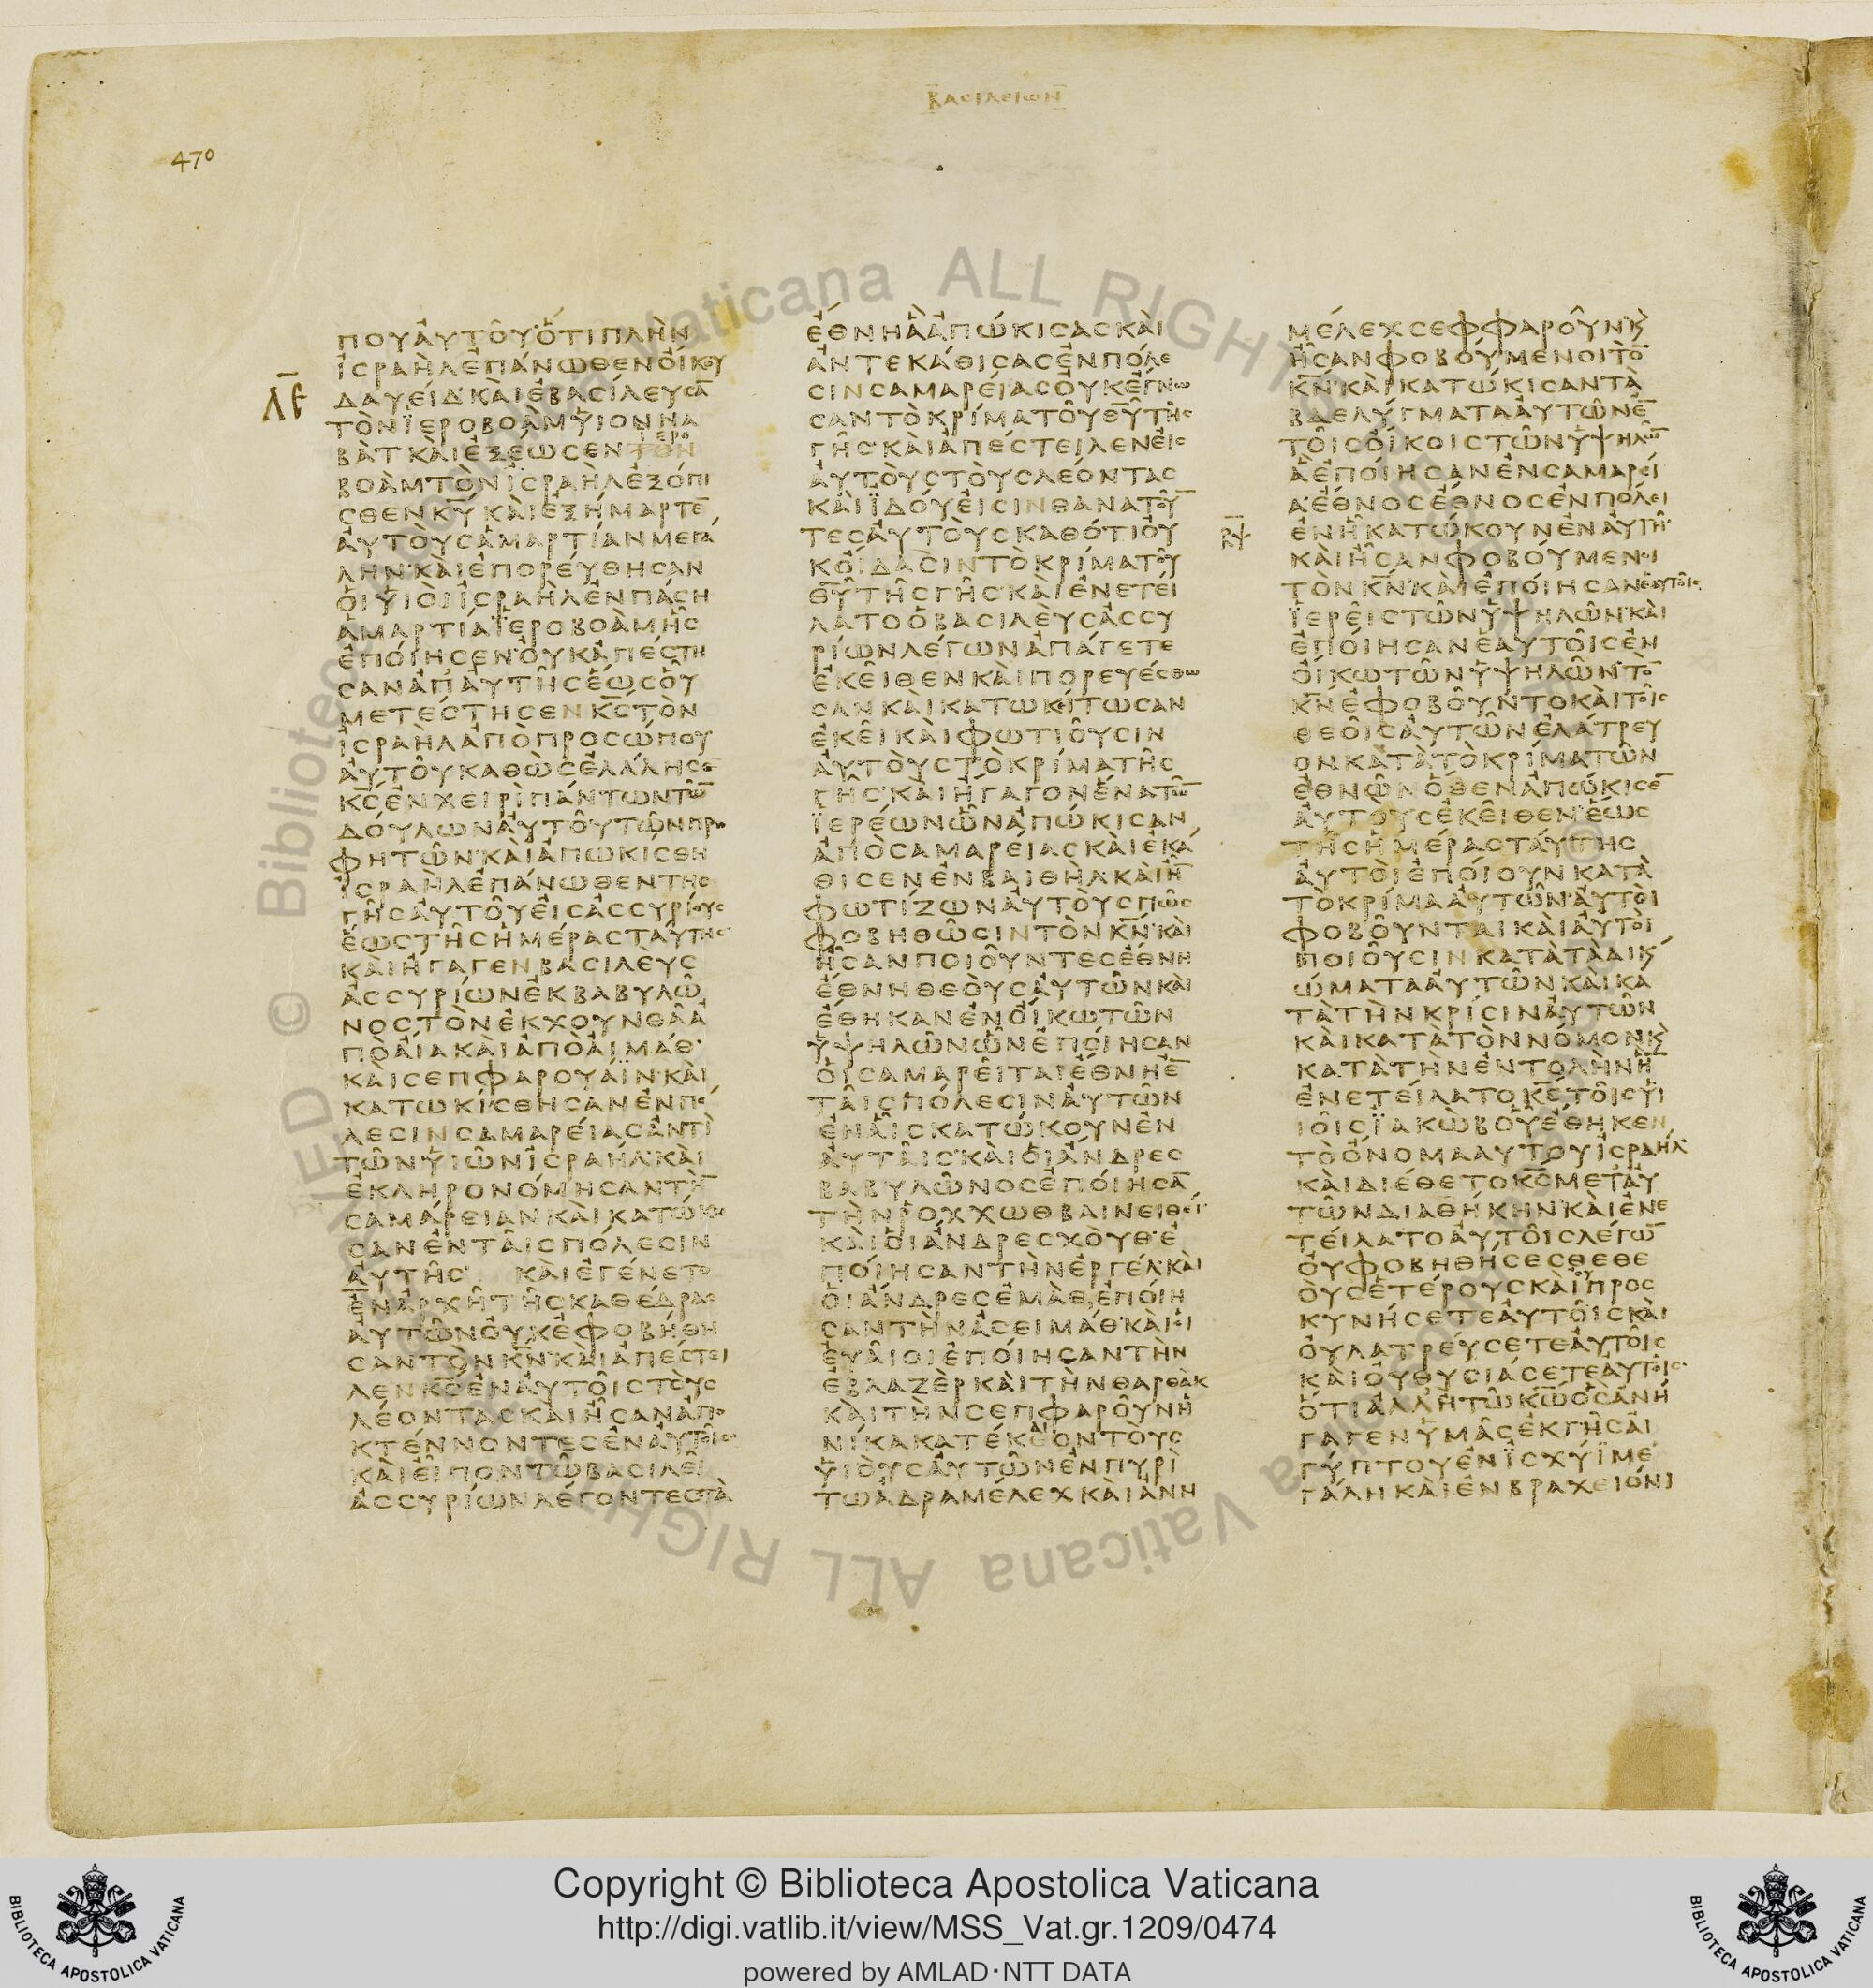 ΒΑΣΙΛΕΙΩΝ
470
ΠΟΥΑΥΤΟΥΟΤΙΠΛΗΝ
ΙΣΡΑΗΛΕΠΑΝΩΘΕΝΟΙΚΟΥ
ΛΕ
ΔΑΥΕΙΔΚΑΙΕΒΑΣΙΛΕΥΣΑ̅
ΤΟΝΙΕΡΟΒΟΑΜΥΙΟΝΝΑ
ΒΑΤΚΑΙΕΞΕΩΣΕΝΙΕΡΟ
ΒΟΑΜΤΟΝΙΣΡΑΗΛΕΞΟΠΙ
ΣΘΕΝΚ̅Υ̅ΚΑΙΕΞΗΜΑΡΤΕ̅
ΑΥΤΟΥΣΑΜΑΡΤΙΑΝΜΕΓΑ
ΛΗΝΚΑΙΕΠΟΡΕΥΘΗΣΑΝ
ΟΙΥΙΟΙΙΣΡΑΗΛΕΝΠΑΣΗ
ΑΜΑΡΤΙΑΙΕΡΟΒΟΑΜΗΣ
ΕΠΟΙΗΣΕΝΟΥΚΑΠΕΣΤΗ
ΣΑΝΑΠΑΥΤΗΣΕΩΣΟΥ
ΜΕΤΕΣΤΗΣΕΝΚ̅Σ̅ΤΟΝ
ΙΣΡΑΗΛΑΠΟΠΡΟΣΩΠΟΥ
ΑΥΤΟΥΚΑΘΩΣΕΛΑΛΗΣΕ̅
Κ̅Σ̅ΕΝΧΕΙΡΙΠΑΝΤΩΝΤΩ̅
ΔΟΥΛΩΝΑΥΤΟΥΤΩΝΠΡΟ
ΦΗΤΩΝΚΑΙΑΠΩΚΙΣΘΗ
ΙΣΡΑΗΛΕΠΑΝΩΘΕΝΤΗΣ
ΓΗΣΑΥΤΟΥΕΙΣΑΣΣΥΡΙΟΥΣ
ΕΩΣΤΗΣΗΜΕΡΑΣΤΑΥΤΗΣ
ΚΑΙΗΓΑΓΕΝΒΑΣΙΛΕΥΣ
ΑΣΣΥΡΙΩΝΕΚΒΑΒΥΛΩ
ΝΟΣΤΟΝΕΚΧΟΥΝΘΑΑ
ΠΟΑΙΑΚΑΙΑΠΟΑΙΜΑΘ
ΚΑΙΣΕΠΦΑΡΟΥΑΙΝΚΑΙ
ΚΑΤΩΚΙΣΘΗΣΑΝΕΝΠΟ
ΛΕΣΙΝΣΑΜΑΡΕΙΑΣΑΝΤΙ
ΤΩΝΥΙΩΝΙΣΡΑΗΛΚΑΙ
ΕΚΛΗΡΟΝΟΜΗΣΑΝΤΗ̅
ΣΑΜΑΡΕΙΑΝΚΑΙΚΑΤΩΚΙ
ΣΑΝΕΝΤΑΙΣΠΟΛΕΣΙΝ
ΑΥΤΗΣ ΚΑΙΕΓΕΝΕΤΟ
ΕΝΑΡΧΗΤΗΣΚΑΘΕΔΡΑΣ
ΑΥΤΩΝΟΥΚΕΦΟΒΗΘΗ
ΣΑΝΤΟΝΚ̅Ν̅ΚΑΙΑΠΕΣΤΕΙ
ΛΕΝΚ̅Σ̅ΕΝΑΥΤΟΙΣΤΟΥΣ
ΛΕΟΝΤΑΣΚΑΙΗΣΑΝΑΠΟ
ΚΤΕΝΝΟΝΤΕΣΕΝΑΥΤΟΙΣ
ΚΑΙΕΙΠΟΝΤΩΒΑΣΙΛΕΙ
ΑΣΣΥΡΙΩΝΛΕΓΟΝΤΕΣΤΑ
ΕΘΝΗΑΑΠΩΚΙΣΑΣΚΑΙ
ΑΝΤΕΚΑΘΙΣΑΣΕΝΠΟΛΕ
ΣΙΝΣΑΜΑΡΕΙΑΣΟΥΚΕΓΝΩ
ΣΑΝΤΟΚΡΙΜΑΤΟΥΘ̅Υ̅ΤΗΣ
ΓΗΣΚΑΙΑΠΕΣΤΕΙΛΕΝΕΙΣ
ΑΥΤΟΥΣΤΟΥΣΛΕΟΝΤΑΣ
ΚΑΙΙΔΟΥΕΙΣΙΝΘΑΝΑΤΟΥ̅
ΤΕΣΑΥΤΟΥΣΚΑΘΟΤΙΟΥ
ΚΟΙΔΑΣΙΝΤΟΚΡΙΜΑΤΟΥ
Θ̅Υ̅ΤΗΣΓΗΣΚΑΙΕΝΕΤΕΙ
ΛΑΤΟΟΒΑΣΙΛΕΥΣΑΣΣΥ
ΡΙΩΝΛΕΓΩΝΑΠΑΓΕΤΕ
ΕΚΕΙΘΕΝΚΑΙΠΟΡΕΥΕΣΘΩ
ΣΑΝΚΑΙΚΑΤΩΚΕΙΤΩΣΑΝ
ΕΚΕΙΚΑΙΦΩΤΙΟΥΣΙΝ
ΑΥΤΟΥΣΤΟΚΡΙΜΑΤΗΣ
ΓΗΣΚΑΙΗΓΑΓΟΝΕΝΑΤΩ̅
ΙΕΡΕΩΝΩΝΑΠΩΚΙΣΑΝ
ΑΠΟΣΑΜΑΡΕΙΑΣΚΑΙΕΚΑ
ΘΙΣΕΝΕΝΒΑΙΘΗΛΚΑΙΗ̅
ΦΩΤΙΖΩΝΑΥΤΟΥΣΠΩΣ
ΦΟΒΗΘΩΣΙΝΤΟΝΚ̅Ν̅ΚΑΙ
ΗΣΑΝΠΟΙΟΥΝΤΕΣΕΘΝΗ
ΕΘΝΗΘΕΟΥΣΑΥΤΩΝΚΑΙ
ΕΘΗΚΑΝΕΝΟΙΚΩΤΩΝ
ΥΨΗΛΩΝΩΝΕΠΟΙΗΣΑΝ
ΟΙΣΑΜΑΡΕΙΤΑΙΕΘΝΗΕ̅
ΤΑΙΣΠΟΛΕΣΙΝΑΥΤΩΝ
ΕΝΑΙΣΚΑΤΩΚΟΥΝΕΝ
ΑΥΤΑΙΣΚΑΙΟΙΑΝΔΡΕΣ
ΒΑΒΥΛΩΝΟΣΕΠΟΙΗΣΑ̅
ΤΗΝΡΟΧΧΩΘΒΑΙΝΕΙΘΕΙ
ΚΑΙΟΙΑΝΔΡΕΣΧΟΥΘΕ
ΠΟΙΗΣΑΝΤΗΝΕΡΓΕΛΚΑΙ
ΟΙΑΝΔΡΕΣΕΜΑΘΕΠΟΙΗ
ΣΑΝΤΗΝΑΣΕΙΜΑΘΚΑΙΟΙ
ΕΥΑΙΟΙΕΠΟΙΗΣΑΝΤΗΝ
ΕΒΛΑΖΕΡΚΑΙΤΗΝΘΑΡΘΑΚ
ΚΑΙΤΗΝΣΕΠΦΑΡΟΥΝΗ
ΝΙΚΑΚΑΤΕΚΑΙΟΝΤΟΥΣ
ΥΙΟΥΣΑΥΤΩΝΕΝΠΥΡΙ
ΤΩΑΔΡΑΜΕΛΕΧΚΑΙΑΝΗ
ΜΕΛΕΧΣΕΦΦΑΡΟΥΝΚ̀
ΗΣΑΝΦΟΒΟΥΜΕΝΟΙΤΟ̅
Κ̅Ν̅ΚΑΙΚΑΤΩΚΙΣΑΝΤΑ
ΒΔΕΛΥΓΜΑΤΑΑΥΤΩΝΕ̅
ΤΟΙΣΟΙΚΟΙΣΤΩΝΥΨΗΛΩ̅
ΑΕΠΟΙΗΣΑΝΕΝΣΑΜΑΡΕΙ
ΑΕΘΝΟΣΕΘΝΟΣΕΝΠΟΛΕΙ
ΕΝΗΚΑΤΩΚΟΥΝΕΝΑΥΤΗ
ΚΑΙΗΣΑΝΦΟΒΟΥΜΕΝΟΙ
ΤΟΝΚ̅Ν̅ΚΑΙΕΠΟΙΗΣΑΝΕΑΥΤΟΙΣ
ΙΕΡΕΙΣΤΩΝΥΨΗΛΩΝΚΑΙ
ΕΠΟΙΗΣΑΝΕΑΥΤΟΙΣΕΝ
ΟΙΚΩΤΩΝΥΨΗΛΩΝΤΟ̅
Κ̅Ν̅ΕΦΟΒΟΥΝΤΟΚΑΙΤΟΙΣ
ΘΕΟΙΣΑΥΤΩΝΕΛΑΤΡΕΥ
ΟΝΚΑΤΑΤΟΚΡΙΜΑΤΩΝ
ΕΘΝΩΝΟΘΕΝΑΠΩΚΙΣΕ̅
ΑΥΤΟΥΣΕΚΕΙΘΕΝΕΩΣ
ΤΗΣΗΜΕΡΑΣΤΑΥΤΗΣ
ΑΥΤΟΙΕΠΟΙΟΥΝΚΑΤΑ
ΤΟΚΡΙΜΑΑΥΤΩΝΑΥΤΟΙ
ΦΟΒΟΥΝΤΑΙΚΑΙΑΥΤΟΙ
ΠΟΙΟΥΣΙΝΚΑΤΑΤΑΔΙΚΑΙ
ΩΜΑΤΑΑΥΤΩΝΚΑΙΚΑ
ΤΑΤΗΝΚΡΙΣΙΝΑΥΤΩΝ
ΚΑΙΚΑΤΑΤΟΝΝΟΜΟΝΚ̀
ΚΑΤΑΤΗΝΕΝΤΟΛΗΝΗ̅
ΕΝΕΤΕΙΛΑΤΟΚ̅Σ̅ΤΟΙΣΥΙ
ΙΟΙΣΙΑΚΩΒΟΥΕΘΗΚΕΝ
ΤΟΟΝΟΜΑΑΥΤΟΥΙΣΡΑΗΛ
ΚΑΙΔΙΕΘΕΤΟΚ̅Σ̅ΜΕΤΑΥ
ΤΩΝΔΙΑΘΗΚΗΝΚΑΙΕΝΕ
ΤΕΙΛΑΤΟΑΥΤΟΙΣΛΕΓΩ̅
ΟΥΦΟΒΗΘΗΣΕΣΘΕΘΕ
ΟΥΣΕΤΕΡΟΥΣΚΑΙΟΥΠΡΟΣ
ΚΥΝΗΣΕΤΕΑΥΤΟΙΣΚΑΙ
ΟΥΛΑΤΡΕΥΣΕΤΕΑΥΤΟΙΣ
ΚΑΙΟΥΘΥΣΙΑΣΕΤΕΑΥΤΟΙΣ
ΟΤΙΑΛΛΗΤΩΚ̅Ω̅ΟΣΑΝΗ
ΓΑΓΕΝΥΜΑΣΕΚΓΗΣΑΙ
ΓΥΠΤΟΥΕΝΙΣΧΥΙΜΕ
ΓΑΛΗΚΑΙΕΝΒΡΑΧΕΙΟΝΙ
Copyright © Biblioteca Apostolica Vaticana
http://digi.vatlib.it/view/MSS_Vat.gr.1209/0474
powered by AMLAD·NTT DATA
BIBLIOTECA APOSTOLICA VATICANA
BIBLIOTECA APOSTOLICA VATICANA